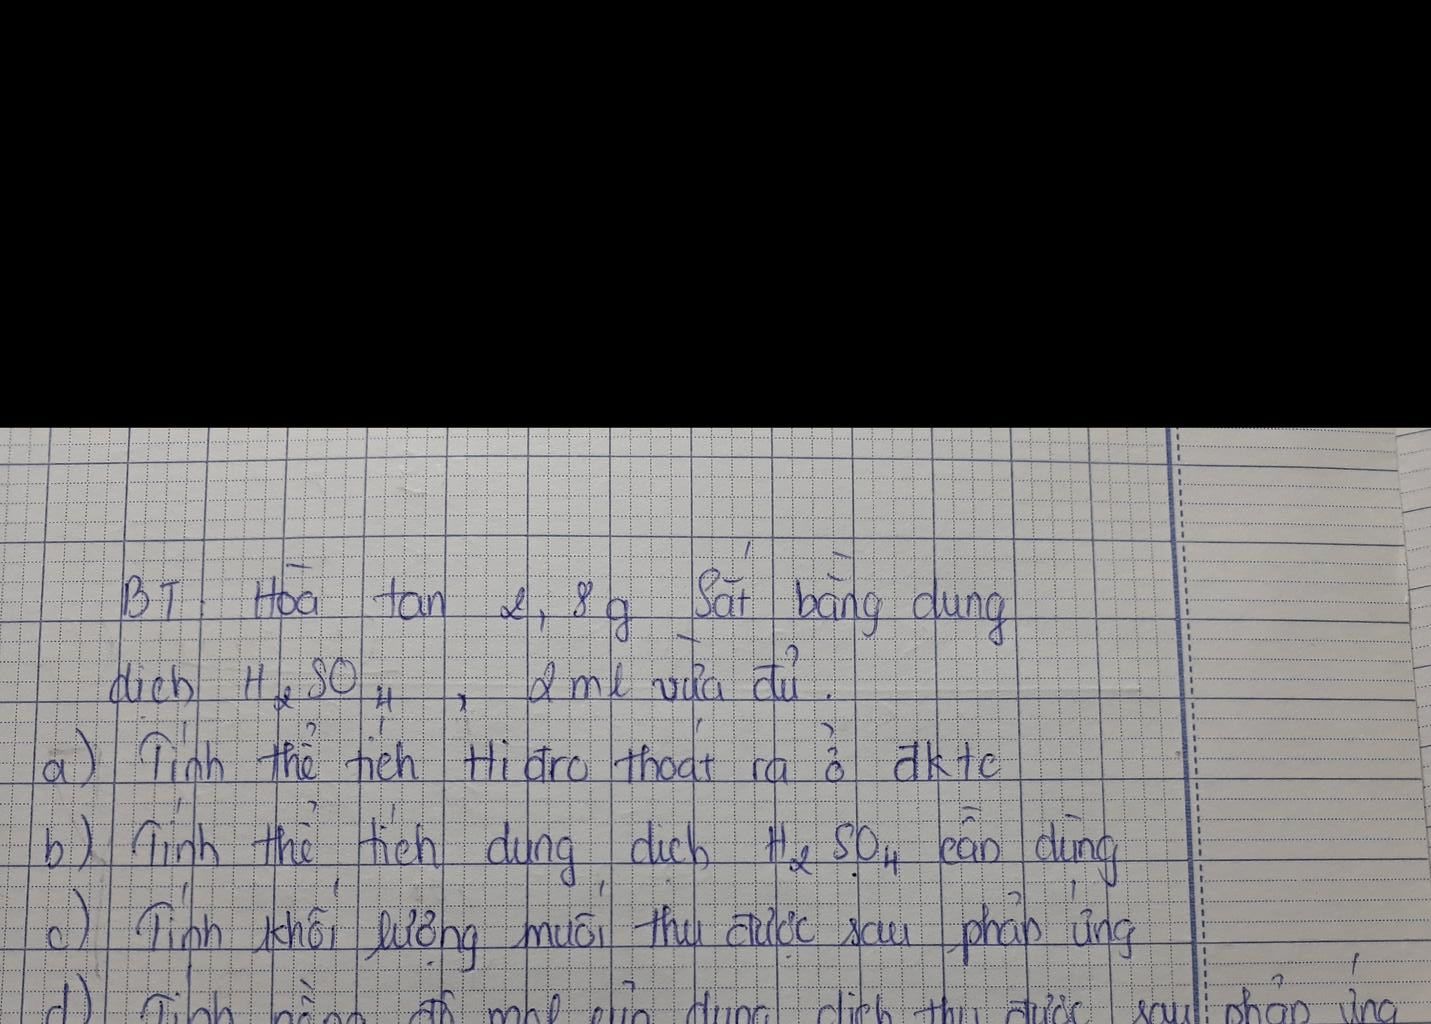 BT Hòa tan 2,8g Sắt bằng dung
dịch H2SO4, 2ml vừa đủ.
a) Tính thể tích Hiđro thoát ra ở đktc
b) Tính thể tích dung dịch H2SO4 cần dùng
c) Tính khối lượng muối thu được sau phản ứng
d) Tính nồng độ mol của dung dịch thu được sau phản ứng